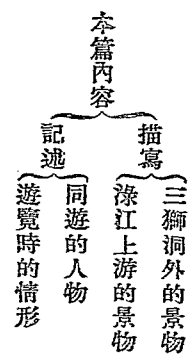 本篇內容
描寫
三獅洞外的景物
淥江上游的景物
記述
同遊的人物
遊覽時的情形